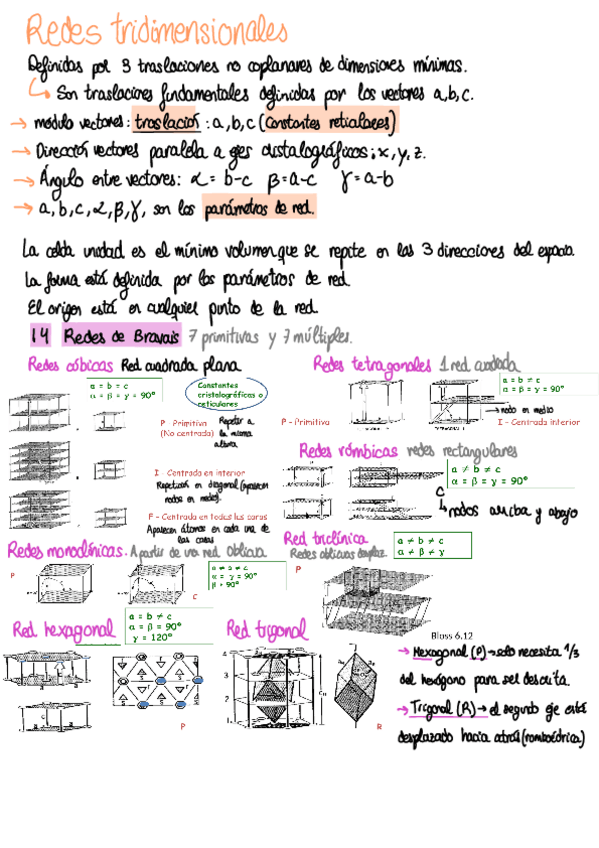 Redes tridimensionales
Definidas por 3 traslaciones no coplanares de dimensiones mínimas.
↳ Son traslaciones fundamentales definidas por los vectores a,b,c.
→ módulo vectores: traslación : a, b, c (constantes reticulares)
→ Dirección vectores paralela a ejes cristalográficos; x, y, z.
→ Ángulo entre vectores: α = b-c β = a-c γ = a-b
→ a, b, c, α, β, γ, son los parámetros de red.
La celda unidad es el mínimo volumen que se repite en las 3 direcciones del espacio.
La forma está definida por los parámetros de red
El origen está en cualquier punto de la red.
14 Redes de Bravais 7 primitivas y 7 múltiples.
Redes cúbicas Red cuadrada plana
a = b = c
α = β = γ = 90°
Constantes
cristalográficas o
reticulares
P - Primitiva
(No centrada)
Repetir a
la misma
altura
I - Centrada en interior
Repetición en diagonal (aparecen
nodos en medio).
F - Centrada en todas las caras
Aparecen átomos en cada una de
las caras
Redes tetragonales 1 red cuadrada
a = b ≠ c
α = β = γ = 90°
→ nodo en medio
P - Primitiva
I - Centrada interior
Redes rómbicas redes rectangulares
a ≠ b ≠ c
α = β = γ = 90°
C
↳ nodos arriba y abajo
Redes monoclínicas. A partir de una red oblicua
a ≠ b ≠ c
α = γ = 90°
β ≠ 90°
P
C
Red triclínica
Redes oblicuas desplaz.
a ≠ b ≠ c
α ≠ β ≠ γ
P
Bloss 6.12
Red hexagonal
a = b ≠ c
α = β = 90°
γ = 120°
P
Red trigonal
4
3
2
1
R
→ Hexagonal (P) → solo necesita 1/3
del hexágono para ser descrita.
→ Trigonal (R) → el segundo eje está
desplazado hacia atrás (romboédrica)